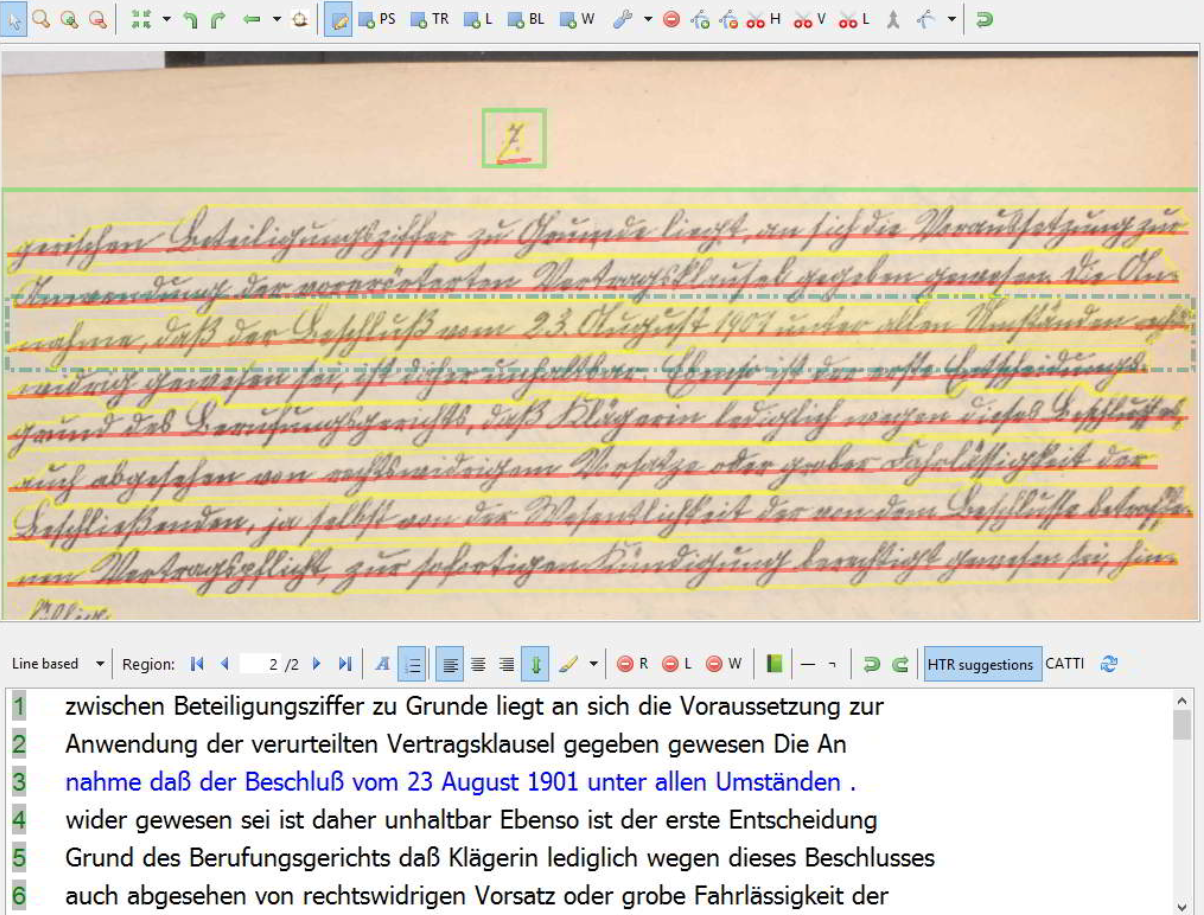 PS TR L BL W H V L
7.
gerischen Beteiligungsziffer zu Grunde liegt, an sich die Voraussetzung zur
Anwendung der vorerörterten Vertragsklausel gegeben gewesen. Die An=
nahme, daß der Beschluß vom 23 August 1901 unter allen Umständen
widrig gewesen sei, ist daher unhaltbar. Ebenso ist der erste Entscheidungs
grund des Berufungsgerichts, daß Klägerin lediglich wegen dieses Beschlusses,
auch abgesehen von rechtswidrigem Vorsatze oder grober Fahrlässigkeit der
Beschließenden, ja selbst von der Wesentlichkeit der von dem Beschlusse betroffe=
nen Vertragspflicht, zur sofortigen Kündigung berechtigt gewesen sei, hin=
Line based Region: 2 /2 R L W HTR suggestions CATTI
1 zwischen Beteiligungsziffer zu Grunde liegt an sich die Voraussetzung zur
2 Anwendung der verurteilten Vertragsklausel gegeben gewesen Die An
3 nahme daß der Beschluß vom 23 August 1901 unter allen Umständen .
4 wider gewesen sei ist daher unhaltbar Ebenso ist der erste Entscheidung
5 Grund des Berufungsgerichts daß Klägerin lediglich wegen dieses Beschlusses
6 auch abgesehen von rechtswidrigen Vorsatz oder grobe Fahrlässigkeit der